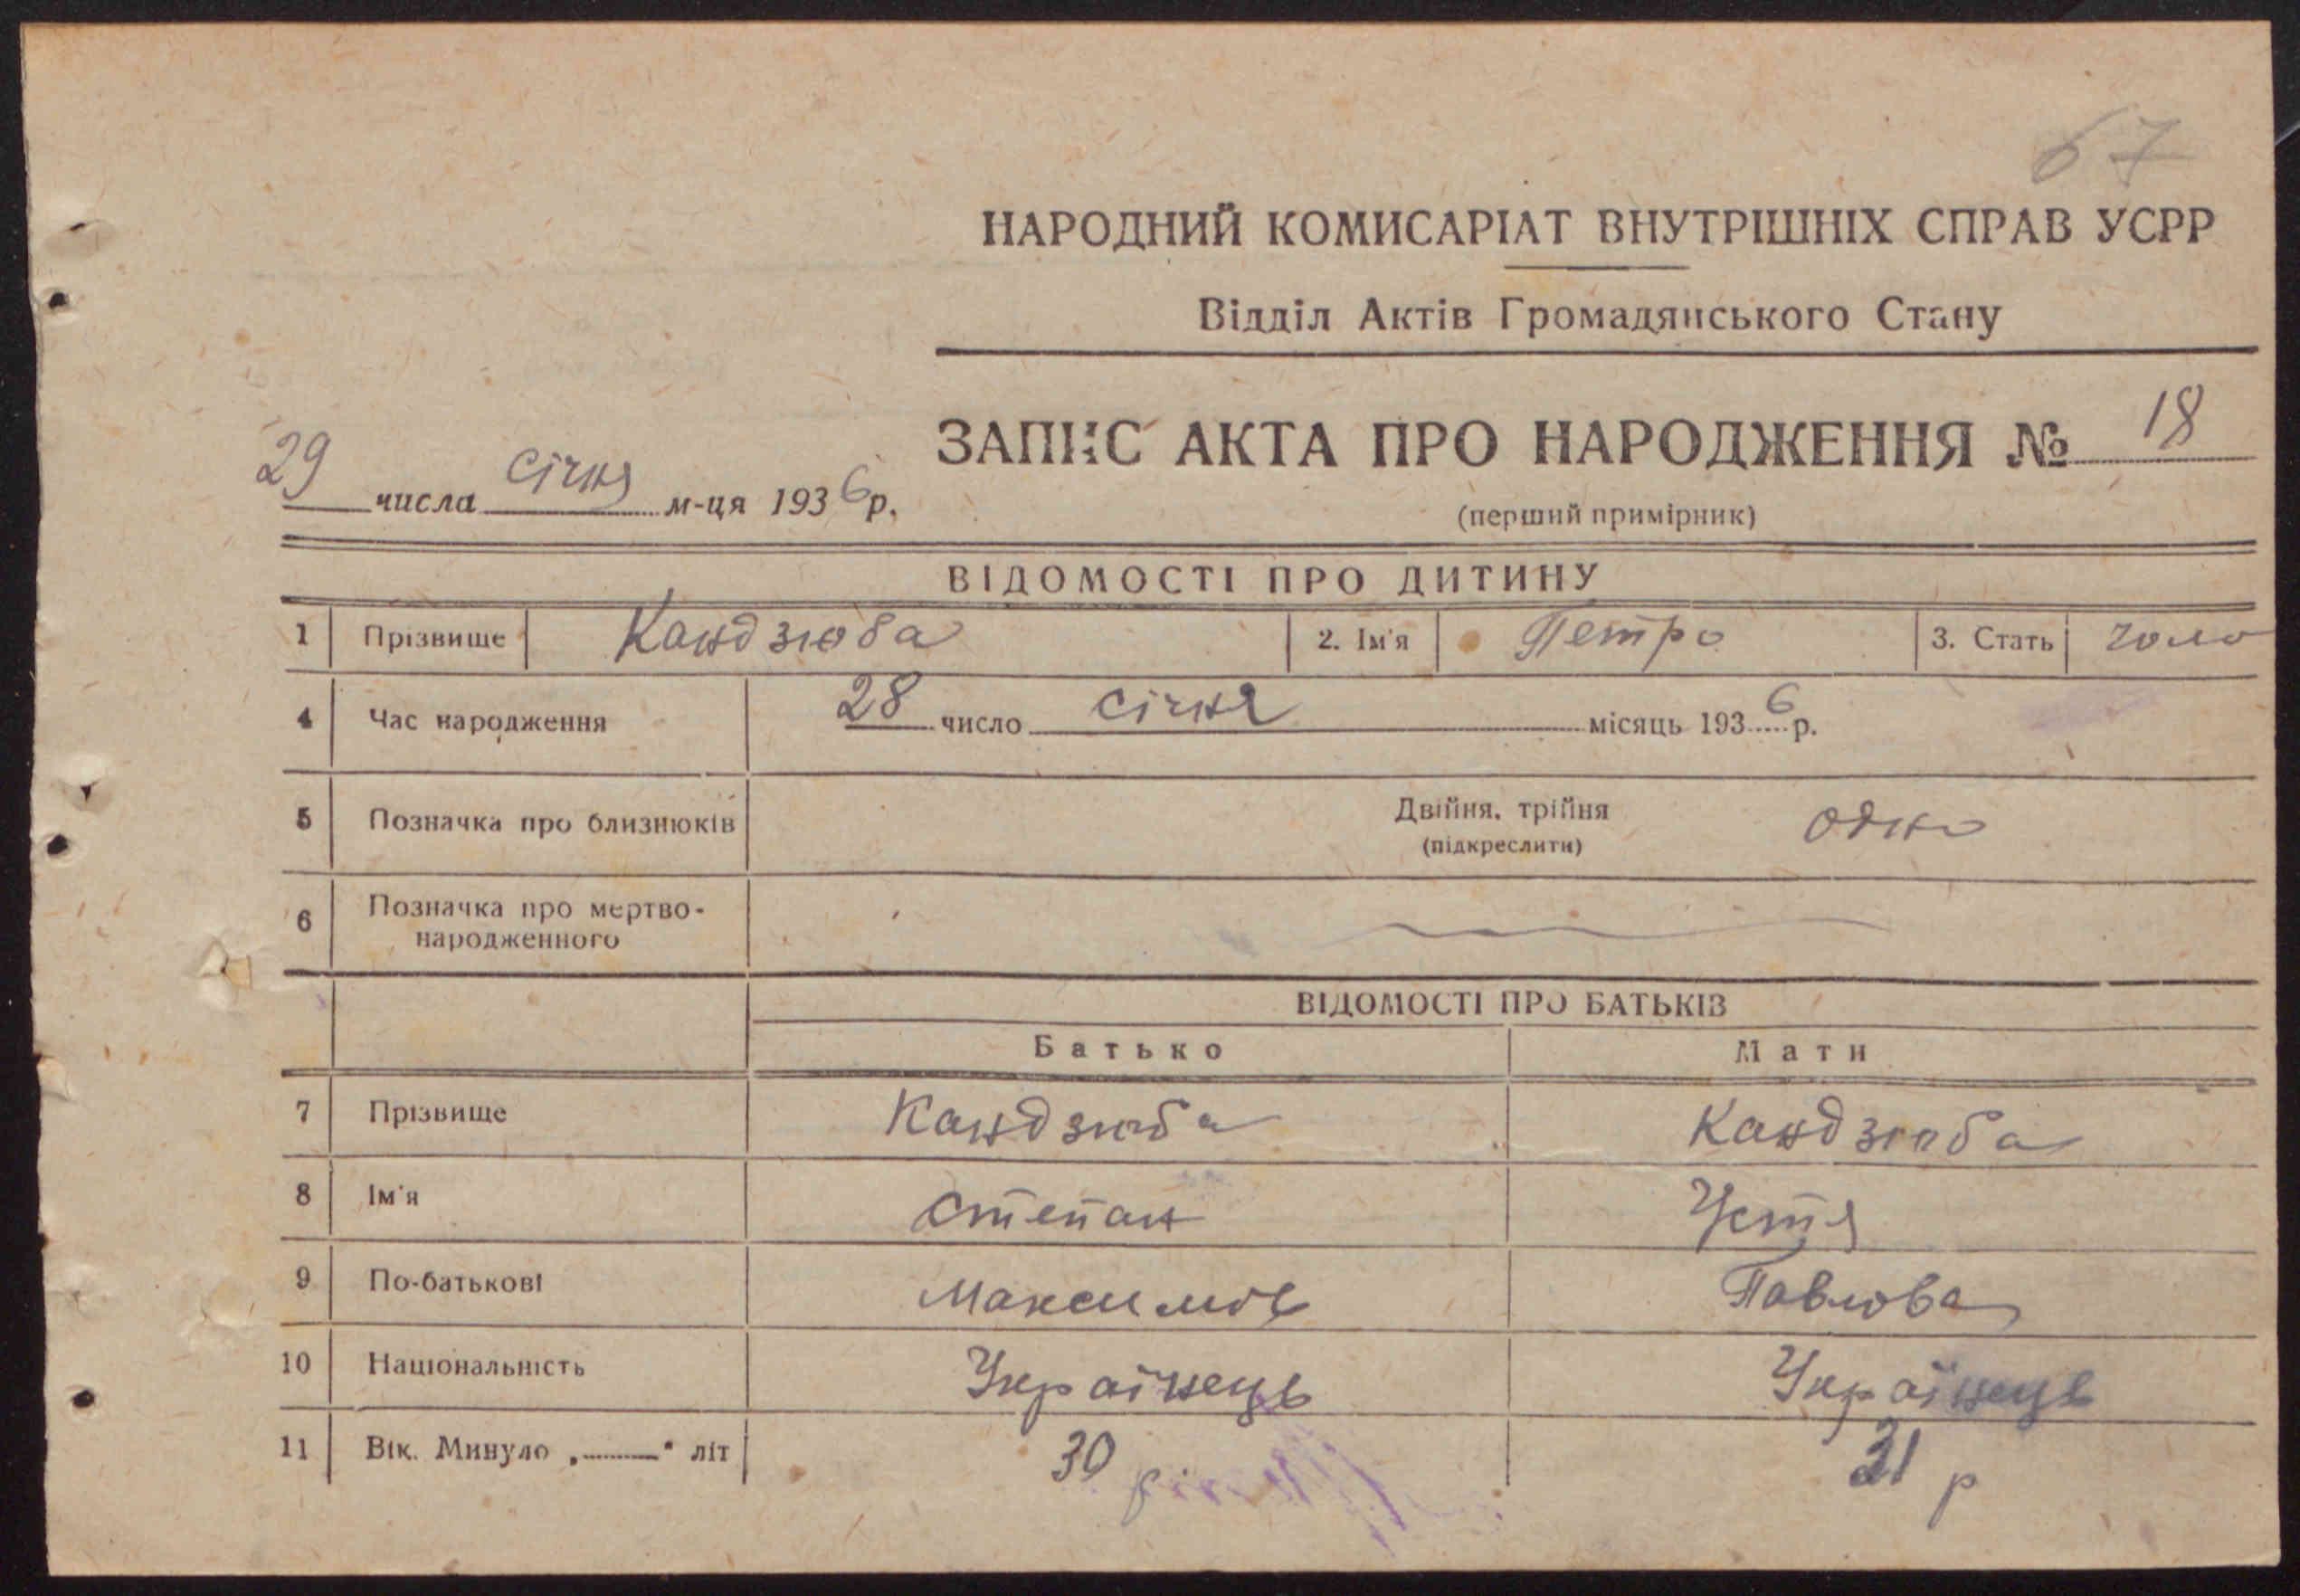 67
НАРОДНИЙ КОМИСАРІАТ ВНУТРІШНІХ СПРАВ УСРР
Відділ Актів Громадянського Стану
ЗАПИС АКТА ПРО НАРОДЖЕННЯ № 18
29 числа січня м-ця 1936 р.
(перший примірник)
ВІДОМОСТІ ПРО ДИТИНУ
1 Прізвище Кандзюба 2. Ім'я Петро 3. Стать чоло
4 Час народження 28 число січня місяць 1936 р.
5 Позначка про близнюків Двійня, трійня одно
(підкреслити)
6 Позначка про мертво-
народженного
ВІДОМОСТІ ПРО БАТЬКІВ
Батько Мати
7 Прізвище Кандзюба Кандзюба
8 Ім'я Степан Устя
9 По-батькові Максимов Павлова
10 Національність Українець Українець
11 Вік. Минуло „ — " літ 30 р 31 р